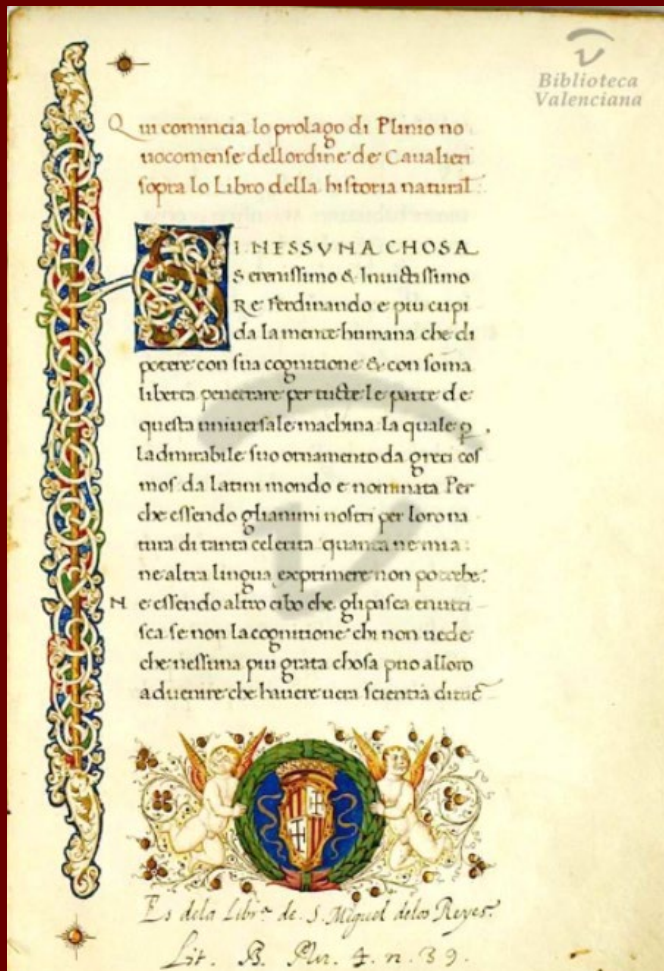 Biblioteca
Valenciana
Qui comincia lo prolago di Plinio no
uocomense dellordine de Caualieri
sopra lo Libro della historia natural
SI NESSVNA CHOSA
Serenissimo & Inuictissimo
Re Ferdinando e piu cupi
da la mente humana che di
potere con sua cognitione & con soma
liberta penetrare per tucte le parte de
questa uniuersale machina la quale ꝑ
ladmirabile suo ornamento da greci cos
mos da latini mondo e nominata Per
che essendo glianimi nostri per loro na
tura di tanta celerita quanta ne mia
ne altra lingua exprimere non potrebe
N e essendo altro cibo che gli pasca e nutri
sca se non la cognitione chi non uede
che nessuna piu grata chosa puo alloro
aduenire che hauere uera scientia di tuc
Es dela Libr.ª de S. Miguel delos Reyes.
Lit. B. Plu. 4. n. 39.